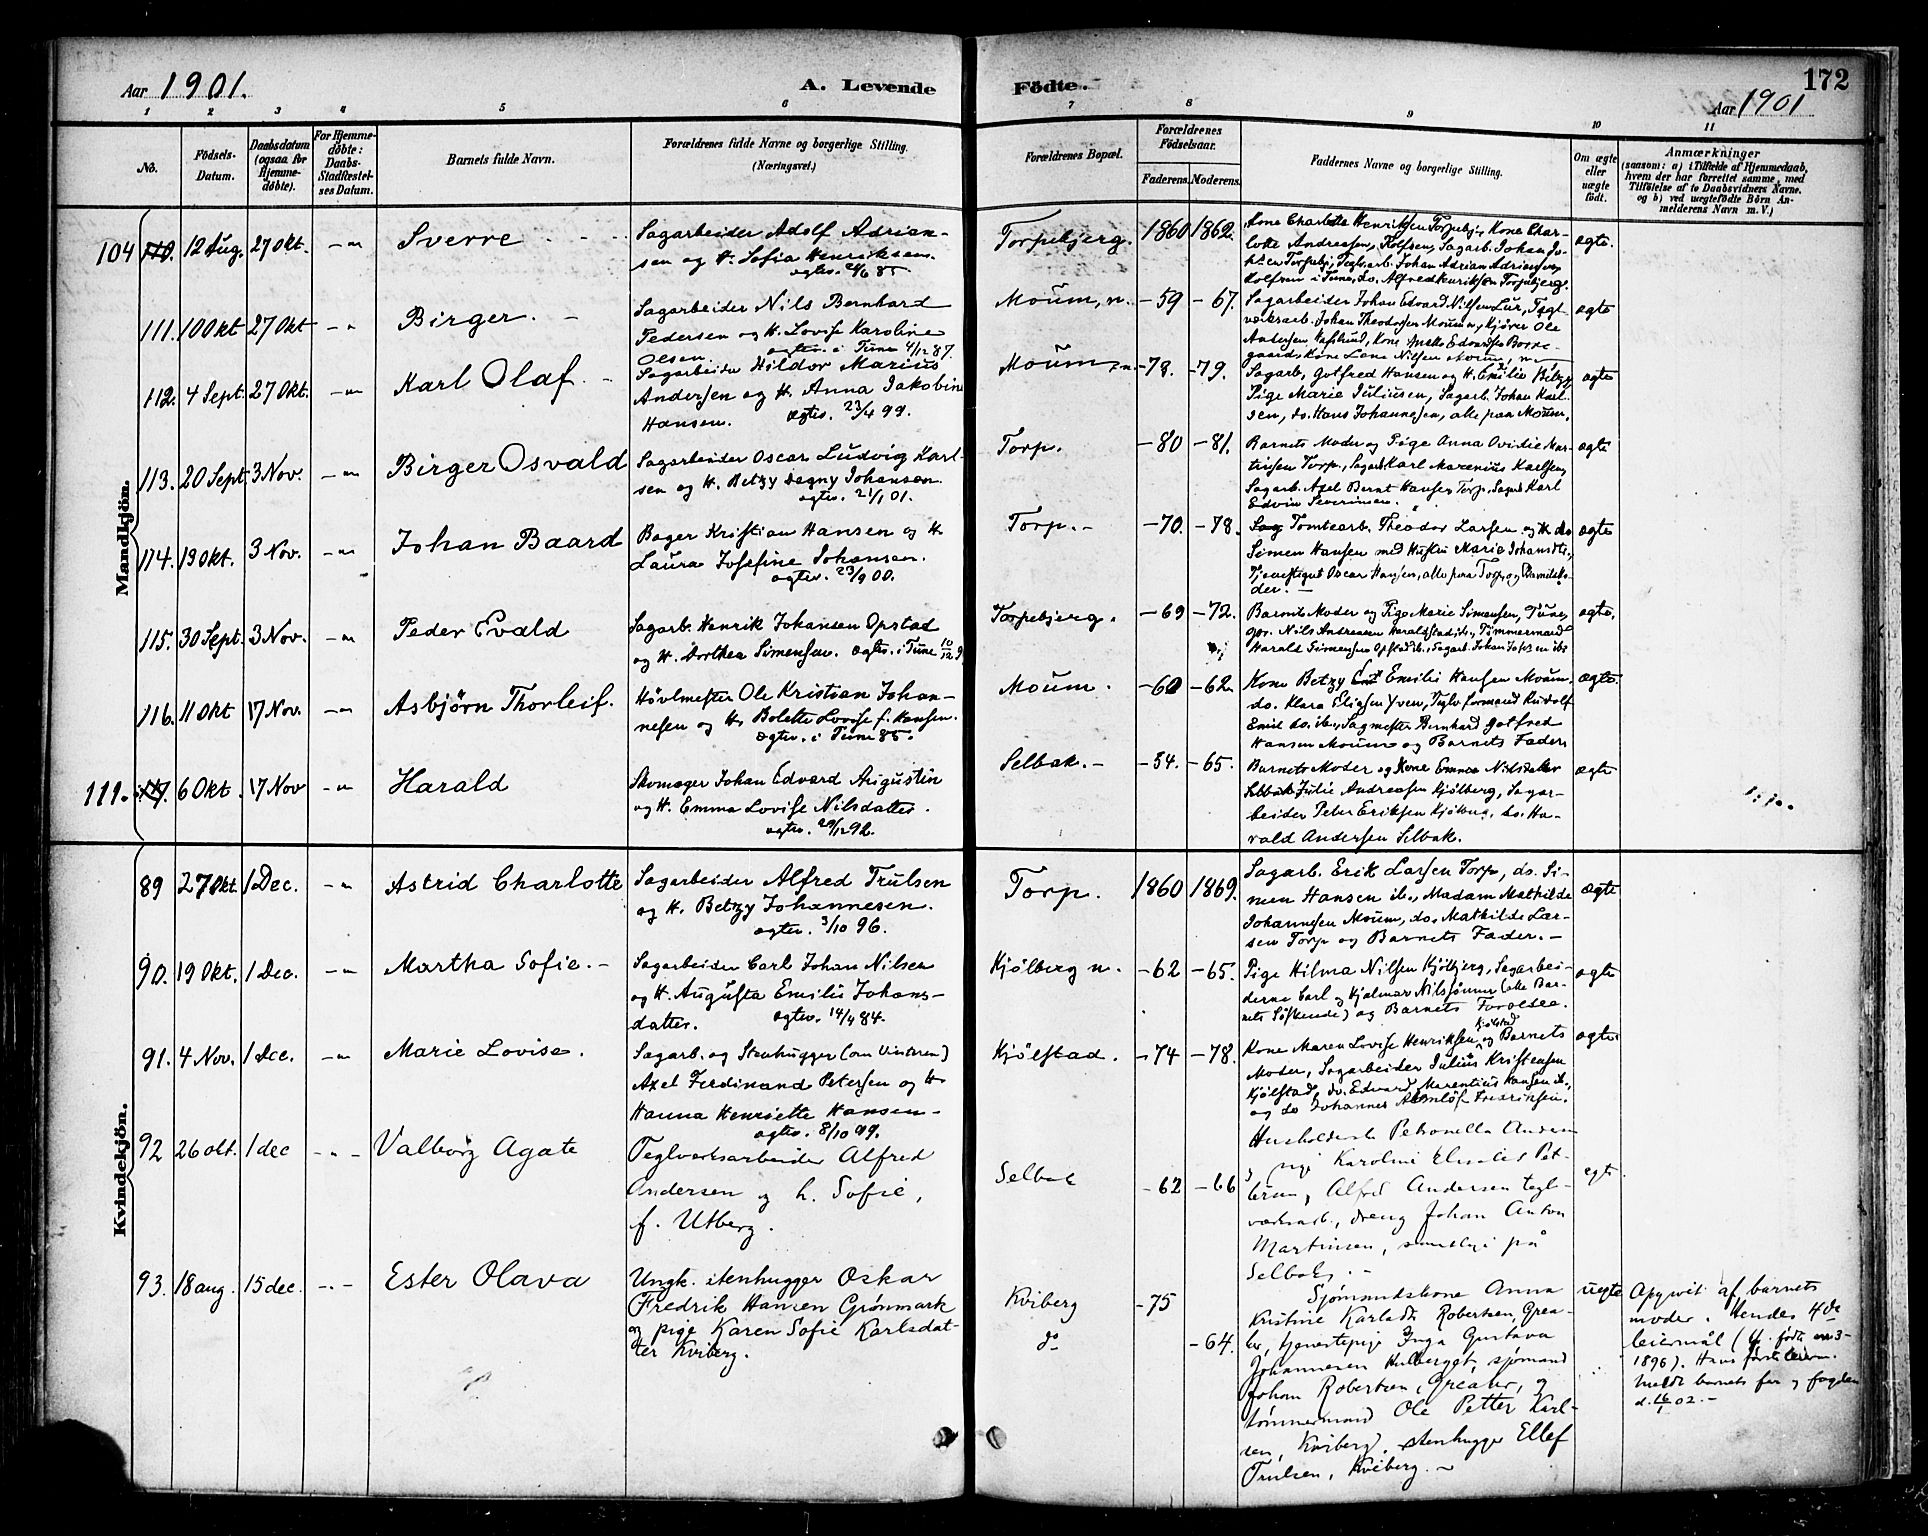 172
Aar 1901.
A. Levende Fødte.
Aar 1901
1 2 3 4 5 6 7 8 9 10 11
No.
Fødsels-Datum.
Daabsdatum (ogsaa for Hjemmedøbte).
For Hjemmedøbte: Daabs-Stadfæstelses Datum.
Barnets fulde Navn.
Forældrenes fulde Navne og borgerlige Stilling. (Næringsvei.)
Forældrenes Bopæl.
Forældrenes Fødselsaar.
Faderens. Moderens.
Faddernes Navne og borgerlige Stilling.
Om ægte eller uægte født.
Anmærkninger
(saasom: a) i Tilfælde af Hjemmedaab, hvem der har forrettet samme, med Tilføielse af to Daabsvidners Navne. og b) ved uægtefødte Børn Anmelderens Navn m. V.)
Mandkjøn.
104 110. 12 Aug. 27 Okt. Sverre
Sagarbeider Adolf Adrian-
sen og H. Sofia Henriksen.
Torpebjerg. 1860 1862.
Kone Charlotte Henriksen Torpebj., Kone Char-
lotte Andreassen, Rolfsen, Sagarb. Johan Jo-
ægte.
111. 10 Okt 27 Okt Birger.
Sagarbeider Nils Bernhard
Pedersen og H. Lovise Karoline
Olsen. ægtev. i Tune 4/12 87.
Moum, n. -59 -67.
Sagarbeider Johan Edvard Nilsen Lur, Tegl-
værksarb. Johan Theodorsen Moum n, Kjører Ole
ægte
112. 4 Sept. 27 Okt. Karl Olaf.
Sagarbeider Hildor Marius
Andersen og H. Anna Jakobine
Hansen. ægtev. 23/4 99.
Moum, n. -78. -79.
Sagarb. Gotfred Hansen og H. Emilie
Pige Marie Juliusen, Sagarb. Johan Karl-
sen, do. Hans Johannesen, alle paa Moum.
ægte
113. 20 Sept. 3 Nov. Birger Osvald
Sagarbeider Oscar Ludvig Karl-
sen og H. Betzy Dagny Johansen.
ægtev. 21/1 01.
Torp. -80 -81.
Barnets Moder og Pige Anna Ovidie Mar-
tinsen Torp., Sagarb. Karl Marenius Karlsen,
Sagarb. Axel Bernt Hansen Torp, Sagarb. Karl
Edvin Severinsen.
ægte
114. 13 Okt. 3 Nov. Johan Baard
Bager Kristian Hansen og H.
Laura Josefine Johansen.
ægtev. 23/9 00.
Torp. -70. -78.
Sag Tomtearb. Theodor Larsen og H. do
Simen Hansen med Hustru Marie Johansdtr.,
Tjenestegut Oscar Hansen, alle paa Torp, og Barnets Mo-
der.
ægte
115. 30 Sept. 3 Nov. Peder Evald
Sagarb. Henrik Johansen Opstad
og H. Dorthea Simensen. ægtev. i Tune 10/12 9
Torpebjerg. -69 -72.
Barnets Moder og Pige Marie Simensen, Tune,
gbr. Nils Andreasen Haraldstad ib., Tømmermand
Harald Simensen Opstad ib., Sagarb. Johan
ægte.
116. 11 Okt 17 Nov. Asbjørn Thorleif.
Høvlmester Ole Kristian Johan-
nesen og H. Bolette Lovise f. Hansen.
ægtev. i Tune 85.
Moum. -60 -62.
Kone Betzy Emilie Hansen Moum,
do. Klara Eliasen Yven, Teglv. formand Rudolf
Emil do. ib., Sagmester Bernhard Gotfred
Hansen Moum og Barnets Fader.
ægte.
111. 117. 6 Okt. 17 Nov Harald
Skomager Johan Edvard Augustin
og H. Emma Lovise Nilsdatter.
ægtev. 29/12 92.
Selbak. -54. -65.
Barnets Moder og Kone Emma Nilsdatter
Selbak Julie Andreassen Kjølberg, Sagar-
beider Peter Eriksen Kjølberg, do. Ha-
rald Andersen Selbak.
ægte
Kvindekjøn.
89 27 Okt. 1 Dec. Astrid Charlotte
Sagarbeider Alfred Trulsen
og H. Betzy Johannesen.
ægtev. 3/10 96.
Torp. 1860 1869.
Sagarb. Erik Larsen Torp, do. Si-
men Hansen ib., Madam Mathilde
Johannesen Moum, do. Mathilde Lar-
sen Torp og Barnets Fader.
ægte
90. 19 Okt. 1 Dec. Martha Sofie.
Sagarbeider Carl Johan Nilsen
og H. Augusta Emilie Johans-
datter. ægtev. 14/4 84.
Kjølberg n. -62 -65.
Pige Hilma Nilsen Kjølbjerg, Sagarbei-
derne Carl og Hjalmar Nilssønner (alle Bar-
nets Søskende) og Barnets Forældre.
ægte
91. 4 Nov. 1 Dec. Marie Lovise.
Sagarb. og Stenhugger (om Vinteren)
Axel Ferdinand Petersen og H.
Hanna Henriette Hansen
ægtev. 8/10 99.
Kjølstad. -74 -78.
Kone Maren Lovise Henriksen Kjølstad og Barnets
Moder, Sagarbeider Julius Kristensen
Kjølstad, do. Edvard Marentius Hansen ib.,
og do Johannes Fredriksen.
ægte
92 26 okt. 1 dec Valborg Agate
Teglverksarbeider Alfred
Andersen og h. Sofie,
f. Utberg.
Selbak -62 -66
Husholderske Petronella Ander-
sen, pige Karoline Elisabet Pet-
tersen, Alfred Andersen tegl-
værksarb., dreng Johan Anton
Martinsen, samtlige på
Selbak.
egte
93. 18 aug. 15 dec. Ester Olava
Ungk. stenhugger Oskar
Fredrik Hansen Grønmark
og pige Karen Sofie Karlsdat-
ter Kviberg.
Kviberg -75
do -64.
Sjømandskone Anna
Kristine Karlsdtr Robertsen, Grea-
ker, tjenestepige Inga Gustava
Johannesen Kulberget, sjømand
Johan Robertsen, Greaker, og
tømmermand Ole Petter Karl-
sen, Kviberg. stenhugger Ellef
Trulsen, Kviberg.
uegte
Opgivet af barnets
moder. Hendes 4de
leiermål (
1896). Hans første leierm.
Meldt barnets far og fogden
d. 16/1 02.